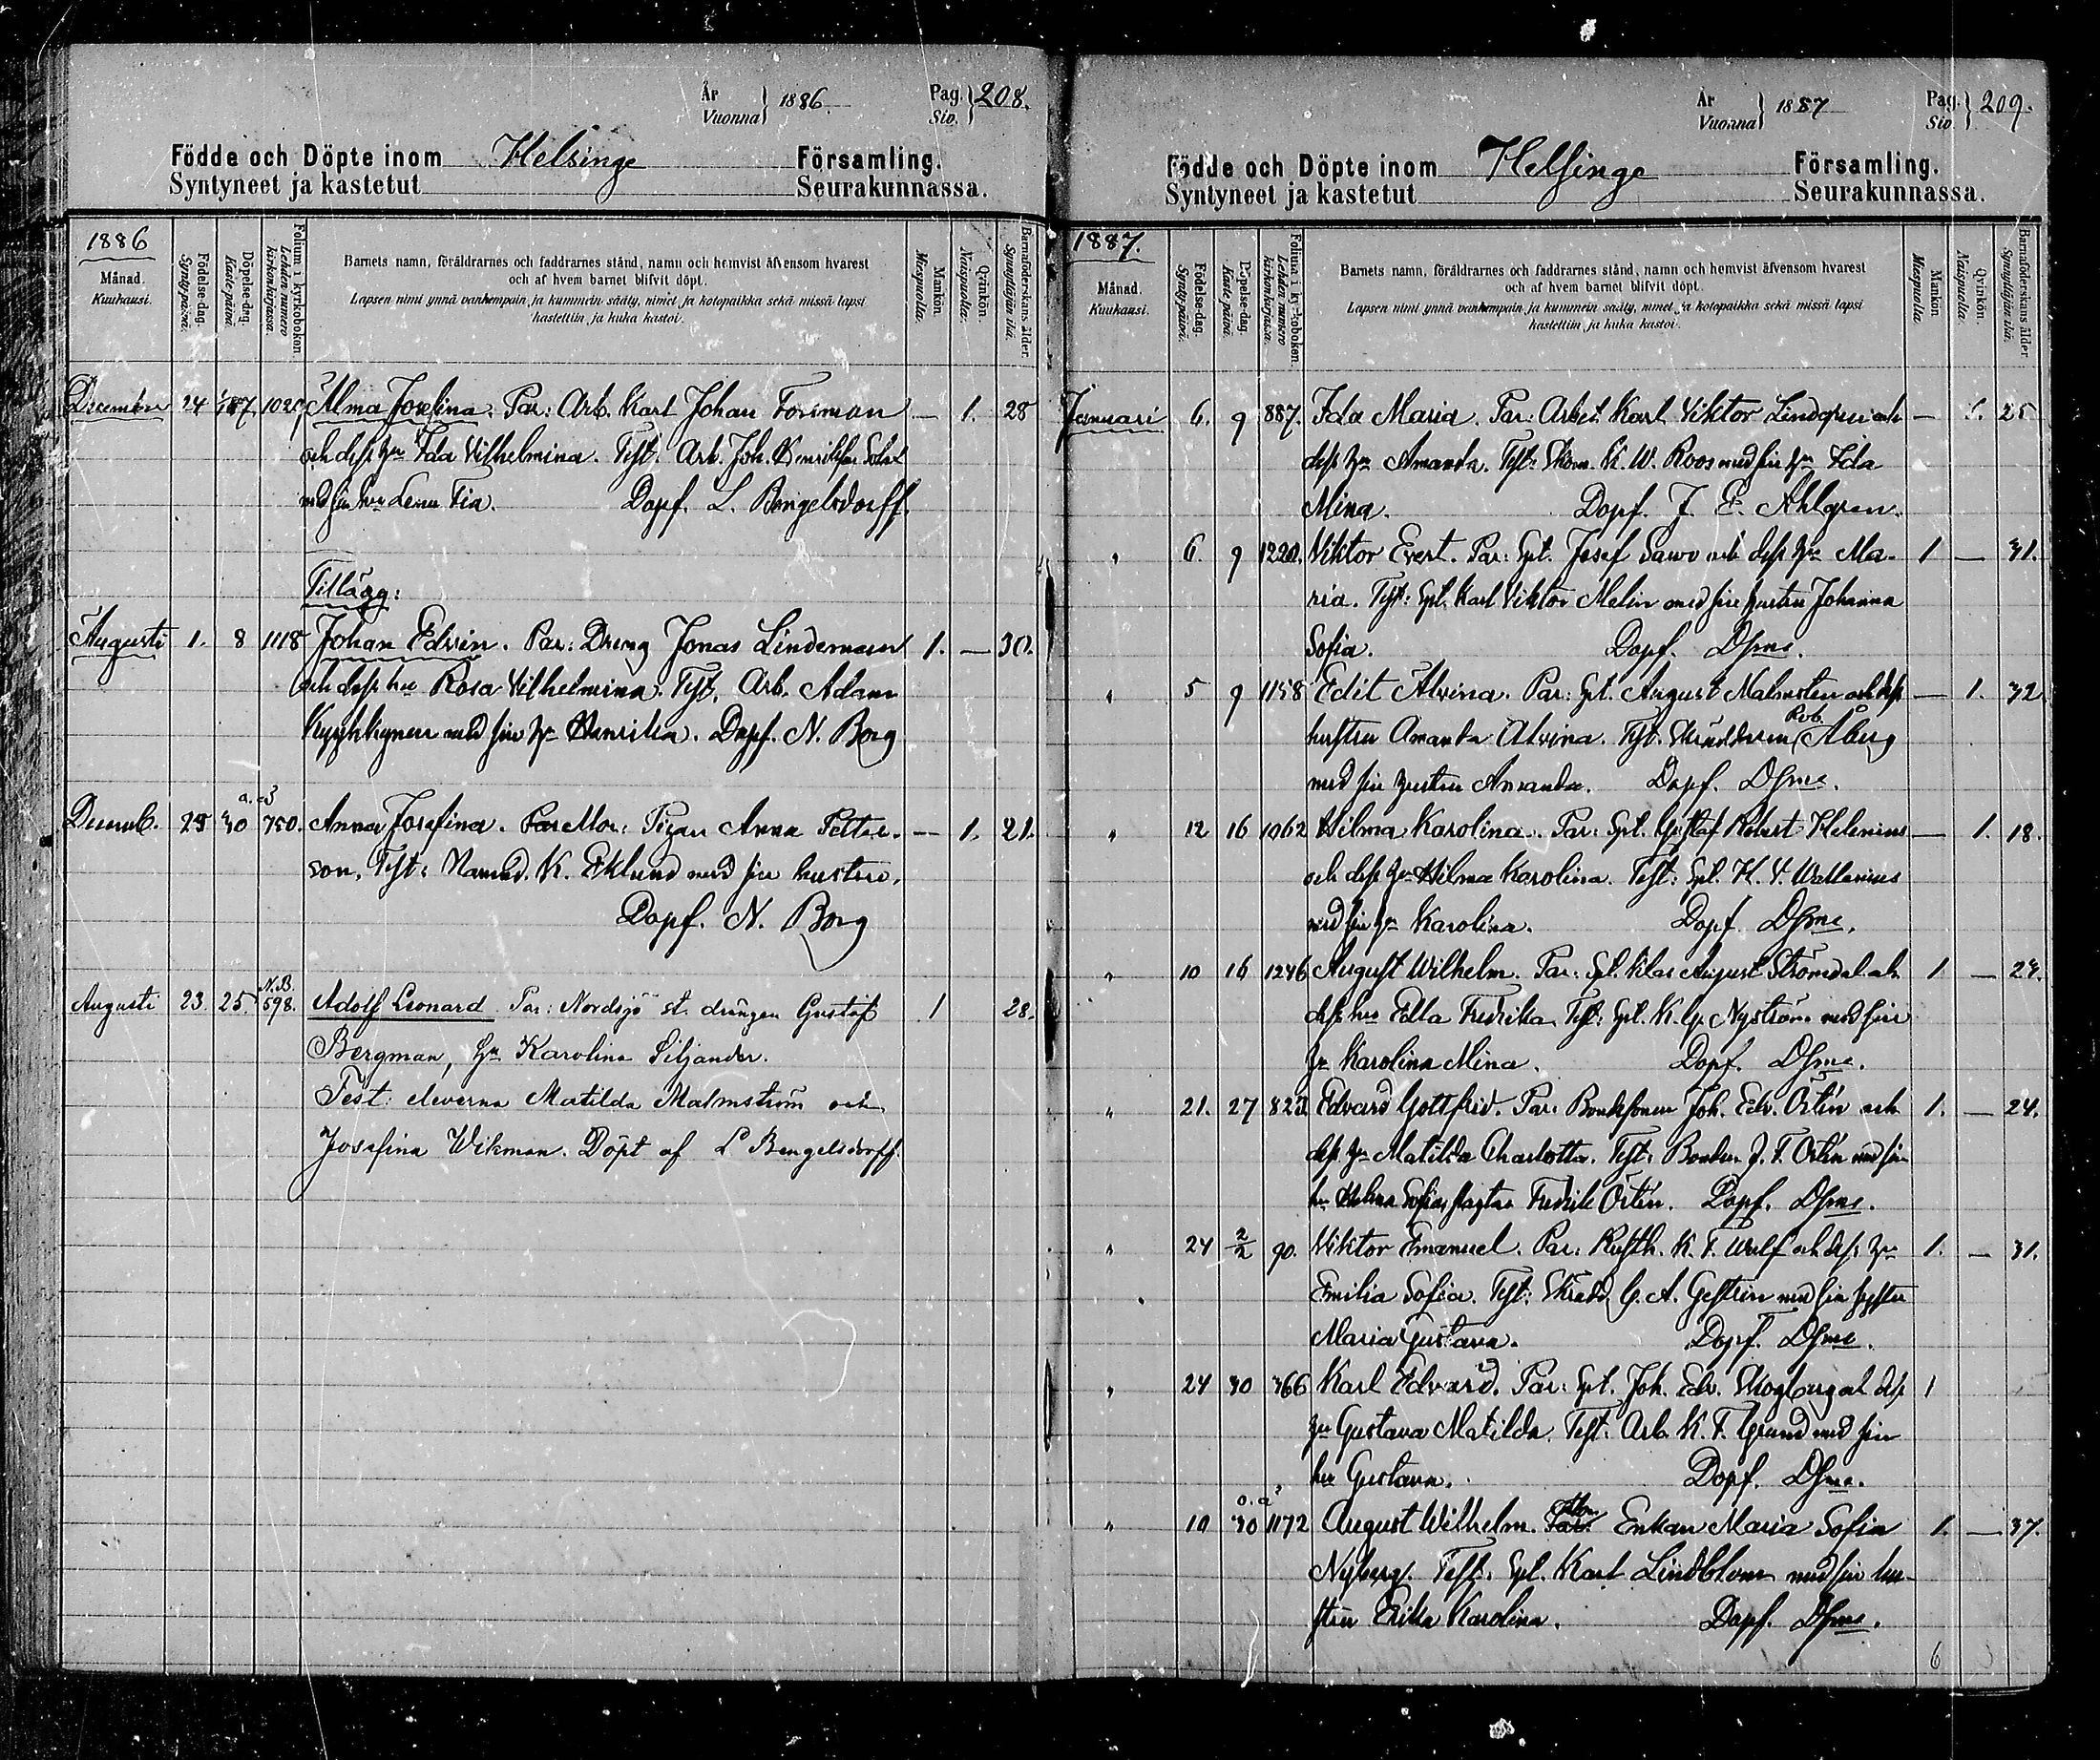 År Vuonna } 1886 Pag. Siv. } 208.
Födde och Döpte inom Helsinge Församling.
Syntyneet ja kastetut Seurakunnassa.
1886
Månad. Kuukausi.
Födelse-dag. Synty-päivä.
Döpelse-dag. Kaste-päivä.
Folium i kyrkoboken. Lehden numero kirkonkirjassa.
Barnets namn, föräldrarnes och faddrarnes stånd, namn och hemvist äfvensom hvarest
och af hvem barnet blifvit döpt.
Lapsen nimi ynnä vanhempain ja kummein sääty, nimet ja kotopaikka sekä missä lapsi
kastettiin ja kuka kastoi.
Mankön. Miespuolia.
Qvinkön. Naispuolia.
Barnaföderskans ålder. Synnyttäjän ikä.
December 24 1027 Alma Josefina. Par: Arb. Karl Johan Forsman — 1. 28
och dess hu Ida Vilhelmina. Test: Arb. Joh.
med sin hu Lena Fia. Döpf. L. Bengelsdorff.
Tillägg:
Augusti 1. 8 1118 Johan Edvin. Par: Dreng Jonas Lindeman 1. — 30.
och dess hu Rosa Vilhelmina. Test, Arb. Adam
med sin hu Henrika. Döpf. N. Borg
o. ä
Decemb. 25 30 750. Anna Josefina. Par Mor: Pigan Anna Petter- — 1. 21.
son. Test: K. Eklund med sin hustru.
Döpf. N. Borg
N.B.
Augusti 23. 25. 598. Adolf Leonard Par: Nordsjö st. drängen Gustaf 1 28.
Bergman, hu Karolina Siljander.
Test: eleverna Matilda Malmström och
Josefina Wikman. Döpt af L Bengelsdorff.
År Vuonna } 1887 Pag. Siv. } 209.
Födde och Döpte inom Helsinge Församling.
Syntyneet ja kastetut Seurakunnassa.
1887.
Månad. Kuukausi.
Födelse-dag. Synty-päivä.
Döpelse-dag. Kaste-päivä.
Folium i kyrkoboken. Lehden numero kirkonkirjassa.
Barnets namn, föräldrarnes och faddrarnes stånd, namn och hemvist äfvensom hvarest
och af hvem barnet blifvit döpt.
Lapsen nimi ynnä vanhempain ja kummein sääty, nimet ja kotopaikka sekä missä lapsi
kastettiin ja kuka kastoi.
Mankön. Miespuolia.
Qvinkön. Naispuolia.
Barnaföderskans ålder. Synnyttäjän ikä.
Januari 6. 9 887. Ida Maria. Par: Arbet. Karl Viktor Lindqvist och — 1. 25
dess hu Amanda. Test: Skom. K. W. Roos med sin hu Ida
Mina. Döpf. J. E. Ahlgren.
" 6. 9 1220. Viktor Evert. Par: Spl. Josef Sawo och dess hu Ma- 1 — 31.
ria. Test: Spl. Karl Viktor Melin med sin hustru Johanna
Sofia. Döpf. Dsme.
" 5 9 1158 Edit Alvina. Par: Spl. August Malmsten och dess — 1. 32
hustru Amanda Alvina. Test: Skräddaren Rob. Åberg
med sin hustru Amanda. Döpf. Dsme.
" 12 16 1062 Hilma Karolina. Par: Spl. Gustaf Robert Helenius — 1. 18.
och dess hu Hilma Karolina. Test: Spl. K. V. Wallenius
med sin hu Karolina. Döpf. Dsme.
" 10 16 1246 August Wilhelm. Par: Spl. Klas August Strömdal och 1 — 24.
dess hu Edla Fredrika. Test: Spl. K. G. Nyström med sin
hu Karolina Mina. Döpf. Dsme.
" 21. 27 823 Edvard Gottfrid. Par: Bondsonen Joh. Edv. Örtén och 1. — 24.
dess hu Matilda Charlotta. Test: Bonden J. F. Örtén med sin
hu Sofia, Fredrik Örtén. Döpf. Dsme.
" 24 2/2 90. Viktor Emanuel. Par: Rusth. K. F. Wulf och dess hu 1. — 31.
Emilia Sofia. Test: Skrädd. G. A. Gestrin med sin syster
Maria Gustava. Döpf. Dsme.
" 24 30 366 Karl Edvard. Par: Spl. Joh. Edv. Skogberg och dess 1
hu Gustava Matilda. Test: Arb. K. F. Grund med sin
hu Gustava. Döpf. Dsme.
o. ä
" 10 30 1172 August Wilhelm. Par: Mor Enkan Maria Sofia 1. — 37.
Nyberg. Test: Spl. Karl Lindblom med sin hu-
stru Erika Karolina. Döpf. Dsme.
6